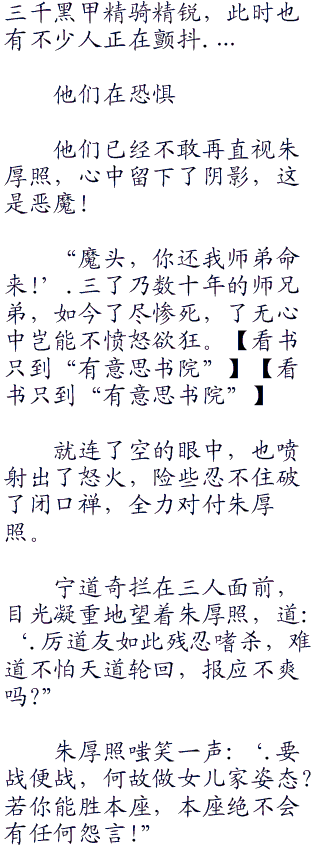 三千黑甲精骑精锐，此时也
有不少人正在颤抖....
他们在恐惧
他们已经不敢再直视朱
厚照，心中留下了阴影，这
是恶魔！
“魔头，你还我师弟命
来！’.三了乃数十年的师兄
弟，如今了尽惨死，了无心
中岂能不愤怒欲狂。【看书
只到“有意思书院”】【看
书只到“有意思书院”】
就连了空的眼中，也喷
射出了怒火，险些忍不住破
了闭口禅，全力对付朱厚
照。
宁道奇拦在三人面前，
目光凝重地望着朱厚照，道：
‘.厉道友如此残忍嗜杀，难
道不怕天道轮回，报应不爽
吗？”
朱厚照嗤笑一声：‘.要
战便战，何故做女儿家姿态？
若你能胜本座，本座绝不会
有任何怨言！”